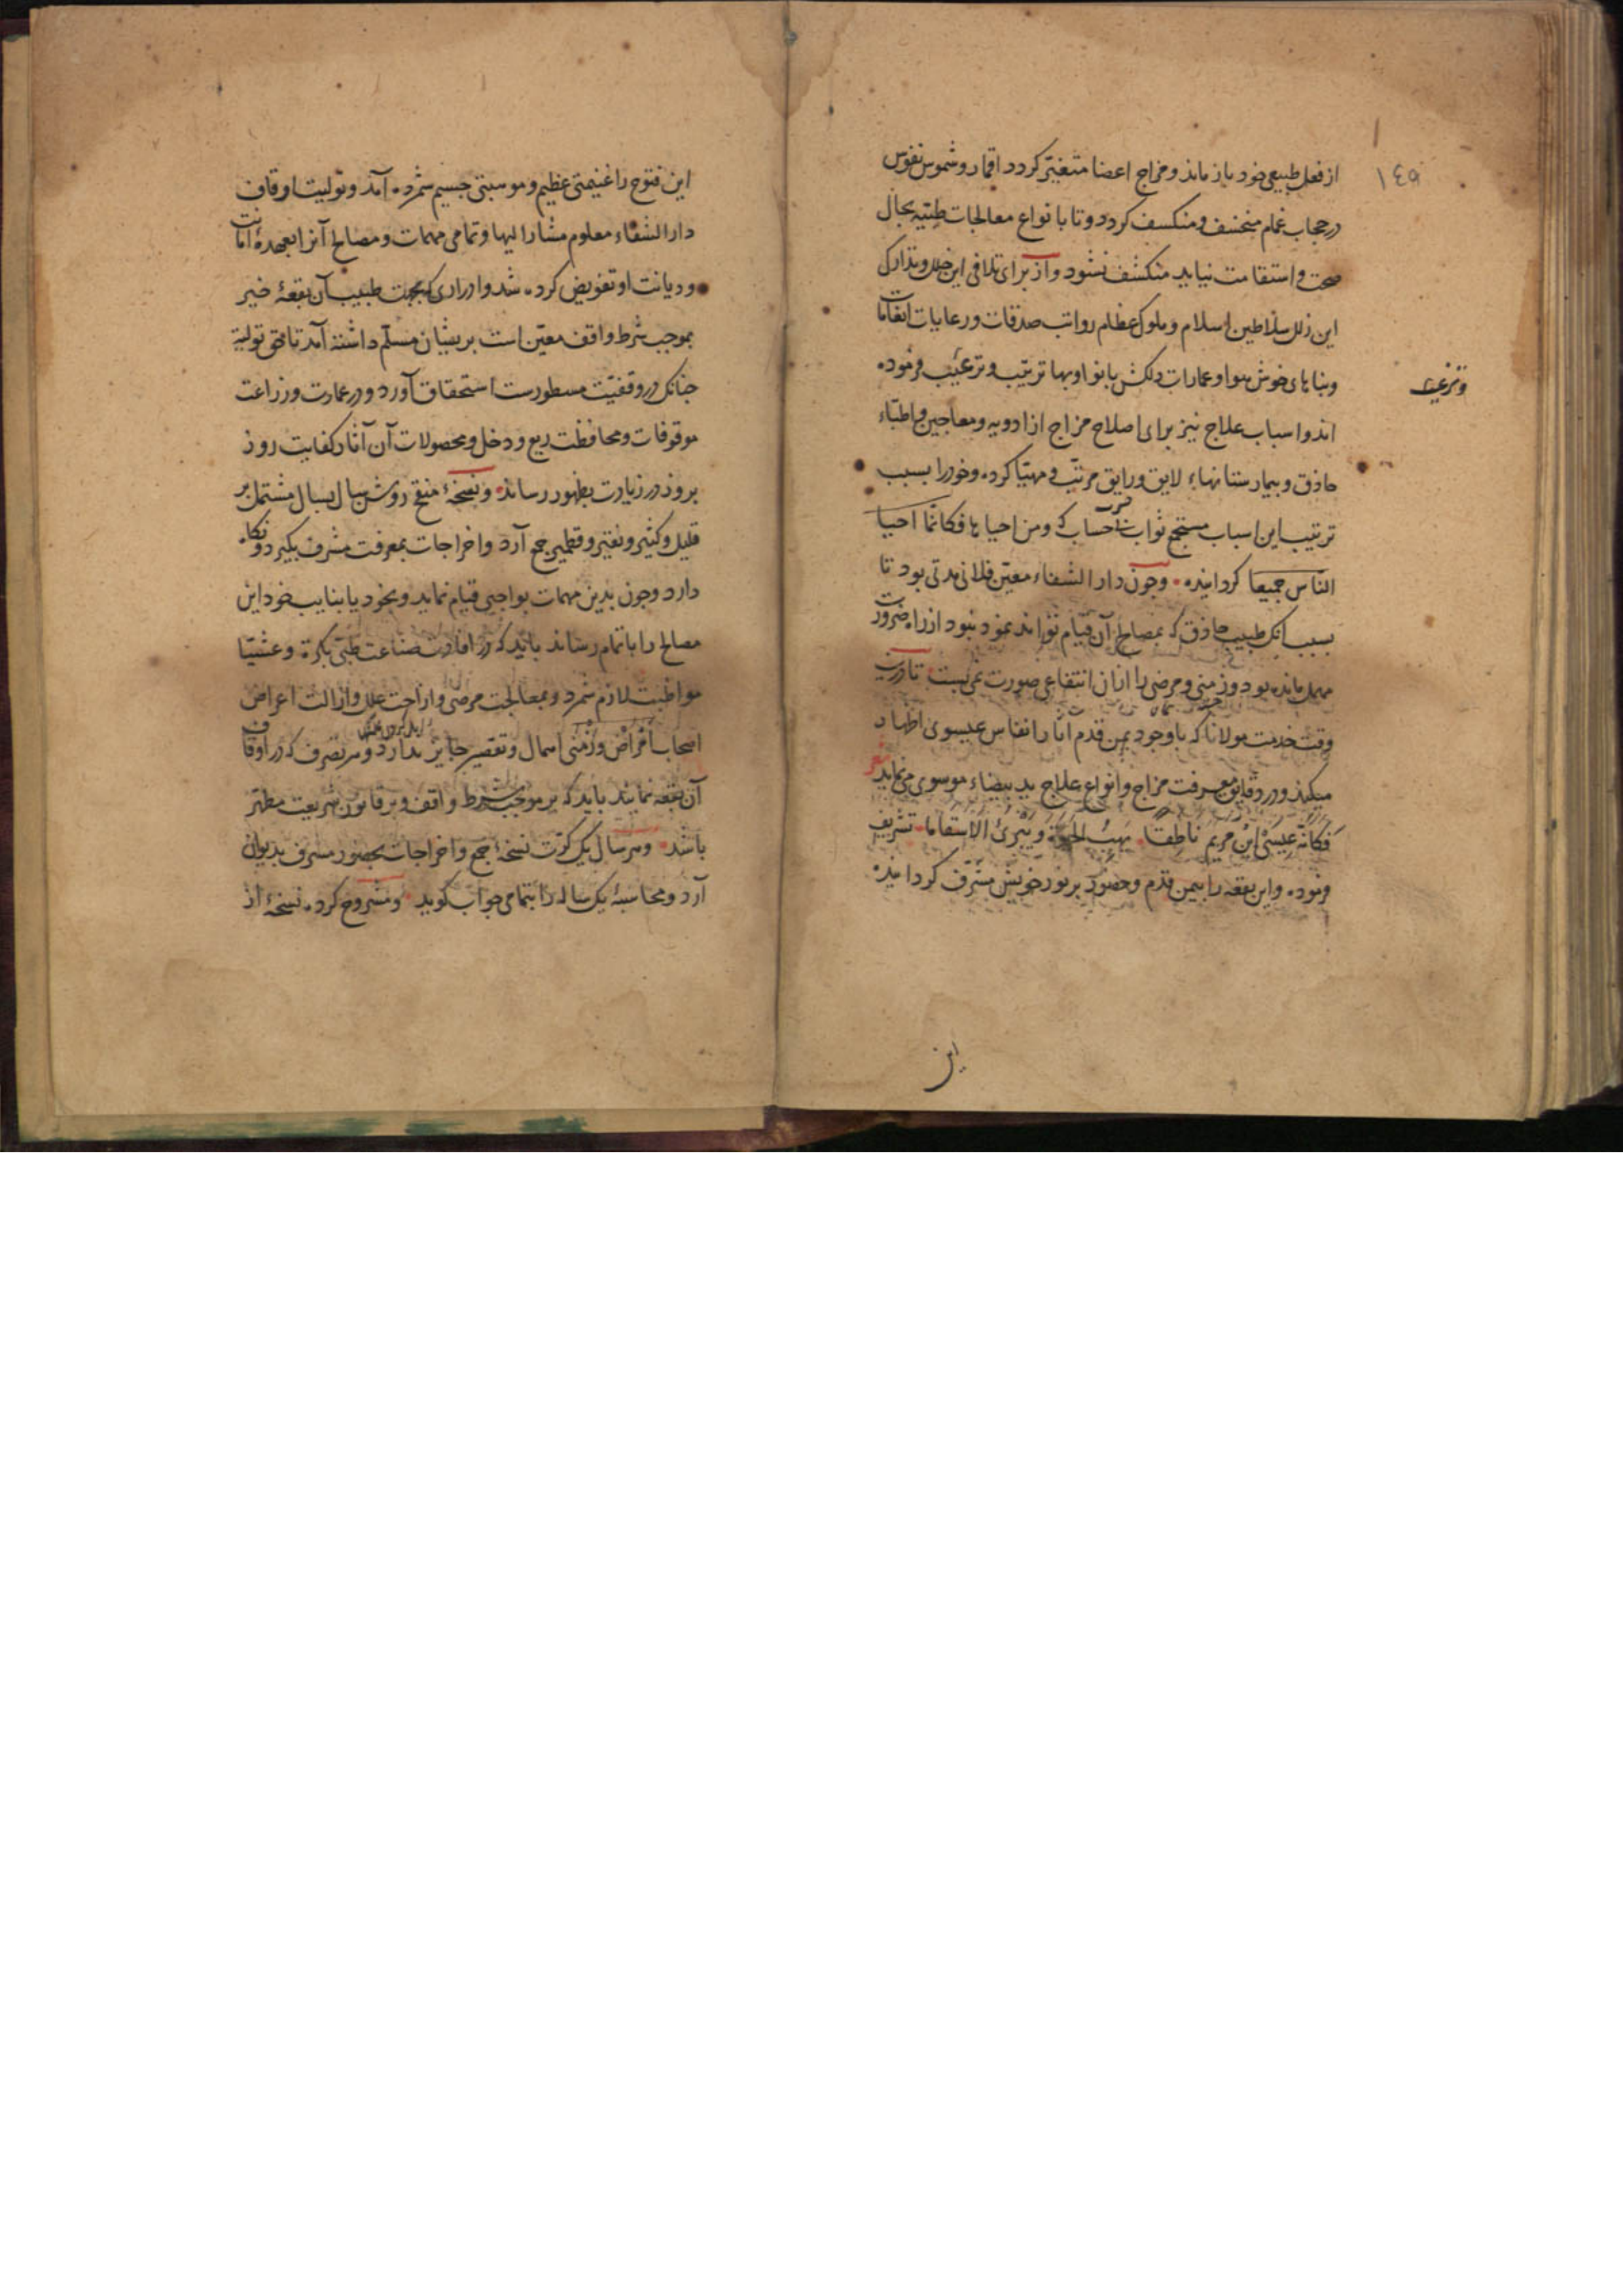 ١٤٩
از فعل طبیعی خود باز ماند و مزاج اعضا متغیّر کردد اقمار و شموس نفوس
در حجاب غمام منخسف و منکسف کردد و تا بانواع معالجات طبّیه بحال
صحت و استقامت نیاید منکشف نشود و از برای تلافی این خلل و تدارک
این زلل سلاطین اسلام و ملوک عظام رواتب صدقات و رعایات انعامات
و بناهای خوش هوا و عمارات دلکش بانوا و بها ترتیب و ترغیب فرموده
و ترغیب
اند و اسباب علاج نیز برای اصلاح مزاج از ادویه و معاجین و اطبّاء
حاذق و بیمارستانهاء لایق و رایق مرتب و مهیّا کرده و خود را بسبب
ترتیب این اسباب مستجمع ثواب احساب که و من احیاها فکانّما احیا
النّاس جمیعا کردانیده وجون دار الشفاء معیّن فلانی مدتی بود تا
بسبب انک طبیب حاذق که بمصالح آن قیام تواند نمود نبود از راه ضرورت
مهمل مانده بود و زمنی و مرضی را ازان انتفاعی صورت نمی بست تا درین
وقت خدمت مولانا که با وجود یمن قدم اثار انفاس عیسوی اظهار
میکند و در دقایق معرفت مزاج و انواع علاج ید بیضاء موسوی می نماید
فَکَانَّهُ عِیسَی ابْنُ مریم ناطِقا یَهَبُ الحیوة وَ یُبْرِئُ الاَسْقاما تشریف
فرموده و این بقعه را بیمن قدم و حضور پر نور خویش مشرّف کردانیده
این
این فتوح را غنیمتی عظیم و موهبتی جسیم شمرده آمد و تولیت اوقاف
دار الشفاء معلوم مشار الیها و تمامی مهمات و مصالح آنرا بعهدهٔ امانت
و دیانت او تفویض کرده شد و ادراری که بجهت طبیب آن بقعهٔ خیر
بموجب شرط واقف معیّن است بریشان مسلّم داشته آمد تا حق تولیة
جنانک در وقفیّت مسطورست استحقاق آورد و در عمارت و زراعت
موقوفات و محافظت ریع و دخل و محصولات آن آثار کفایت روز
بروز در زیادت بظهور رساند و نسخهٔ منقح روشن سال بسال مشتمل بر
قلیل و کثیر و نقیر و قطمیر جمع آرد و اخراجات بمعرفت مشرف بکیرد و نکاه
دارد وجون بدین مهمات بواجبی قیام نماید و بخود یا بنایب خود این
مصالح را باتمام رساند باید که در افادت صناعت طبّی بکرة و عشیّا
مواظبت لازم شمرد و بمعالجت مرضی و ازاحت علل و ازالت اعراض
اصحاب امراض و زمنی اهمال و تقصیر جایز ندارد و هر تصرف که در اوقاف
آن بقعه نمایند باید که بر موجب شرط واقف و بر قانون شریعت مطهّر
باشد و هر سال یک کرّت نسخهٔ جمع و اخراجات بحضور مشرف بدیوان
آرد و محاسبهٔ یک ساله را بتمامی جواب کوید و مشروح کرده نسخهٔ از